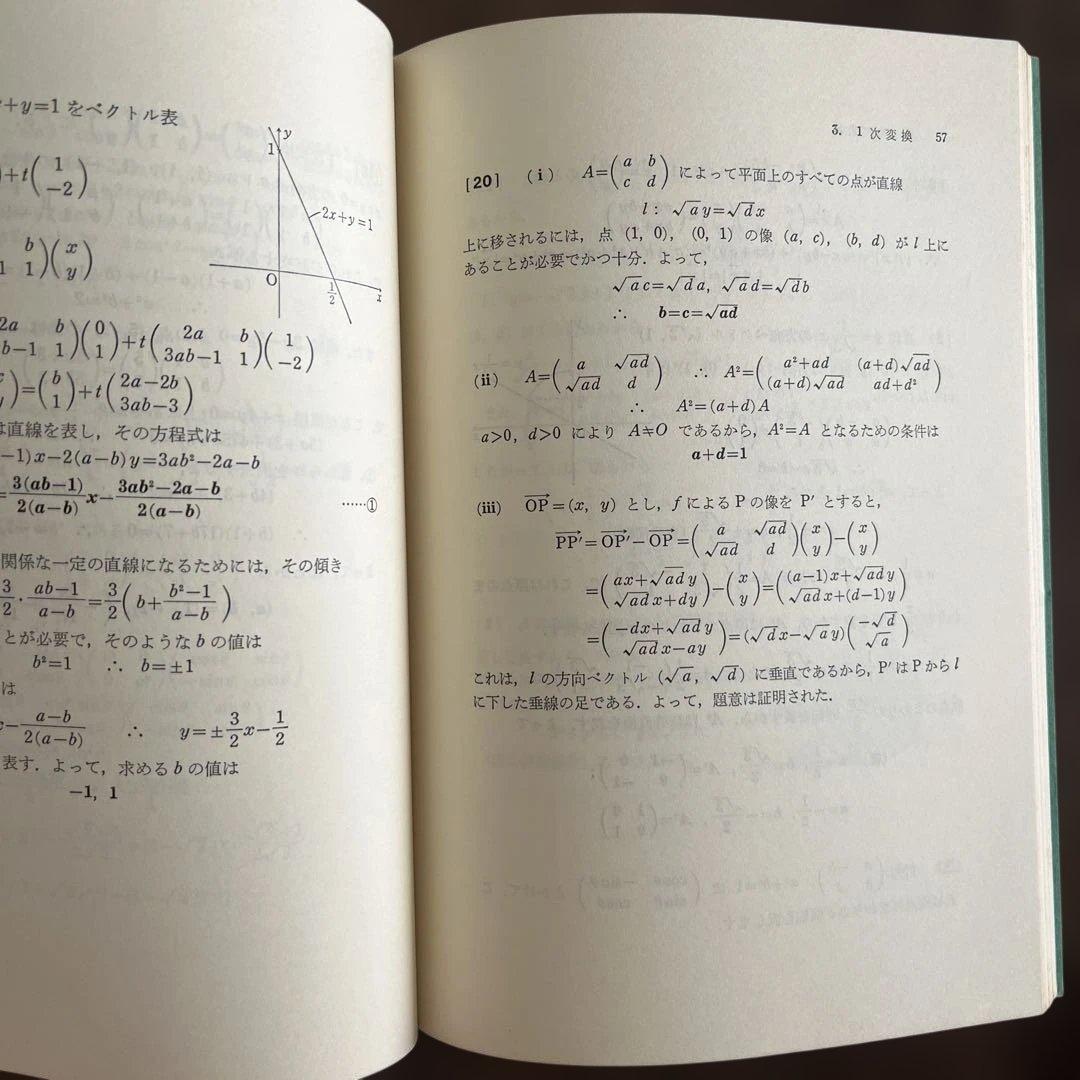 +y=1 をベクトル表
+t(1 -2)
y
1
2x+y=1
O
1/2
x
b 1 1)(x y)
2a b b-1 1)(0 1)+t(2a b 3ab-1 1)(1 -2)
)=(b 1)+t(2a-2b 3ab-3)
は直線を表し，その方程式は
-1)x-2(a-b)y=3ab²-2a-b
=3(ab-1)/2(a-b) x-3ab²-2a-b/2(a-b) ……①
関係な一定の直線になるためには，その傾き
3/2・ab-1/a-b=3/2(b+b²-1/a-b)
とが必要で，そのような b の値は
b²=1 ∴ b=±1
は
-a-b/2(a-b) ∴ y=±3/2x-1/2
表す．よって，求める b の値は
-1, 1
3. 1次変換 57
[20] (i) A=(a b c d) によって平面上のすべての点が直線
l: √a y=√d x
上に移されるには，点 (1, 0), (0, 1) の像 (a, c), (b, d) が l 上に
あることが必要でかつ十分．よって，
√a c=√d a, √a d=√d b
∴ b=c=√ad
(ii) A=(a √ad √ad d) ∴ A²=(a²+ad (a+d)√ad (a+d)√ad ad+d²)
∴ A²=(a+d)A
a>0, d>0 により A≠O であるから，A²=A となるための条件は
a+d=1
(iii) OP=(x, y) とし，f による P の像を P′ とすると，
PP′=OP′-OP=(a √ad √ad d)(x y)-(x y)
=(ax+√ad y √ad x+dy)-(x y)=((a-1)x+√ad y √ad x+(d-1)y)
=(-dx+√ad y √ad x-ay)=(√d x-√a y)(-√d √a)
これは，l の方向ベクトル (√a, √d) に垂直であるから，P′ は P から l
に下した垂線の足である．よって，題意は証明された．